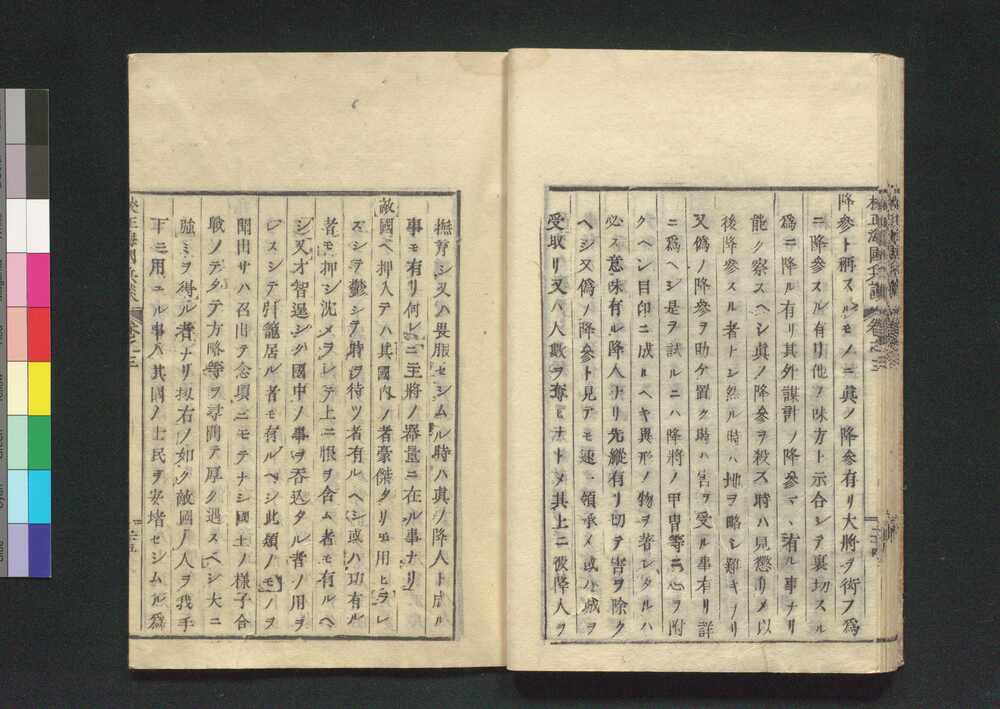 降參ト稱スルモノニ眞ノ降參有リ大將ヲ術フ爲
ニ降參スル有リ他ノ味方ト示合シテ裏切スル
爲ニ降ル有リ其外謀計ノ降參マヽ有ル事ナリ
能ク察スヘシ眞ノ降參ヲ殺ス時ハ見懲リメ以
後降參スル者ナシ然ル時ハ地ヲ略シ難キナリ
又僞ノ降參ヲ助ケ置ク時ハ害ヲ受ル事有リ詳
ニ爲ヘシ是ヲ試ルニハ降將ノ甲冑等ニ心ヲ附
クヘシ目印ニ成ルヘキ異形ノ物ヲ著シタルハ
必ス意味有ル降人ナリ先縱有リ切テ害ヲ除ク
ヘシ又僞ノ降參ト見テモ速ニ領承メ或ハ城ヲ
受取リ又ハ人數ヲ奪ヒナトメ其上ニ彼降人ヲ
撫育シ又ハ畏服セシムル時ハ眞ノ降人ト成ル
事モ有リ何レニ主將ノ器量ニ在ル事ナリ
敵國ヘ押入テハ其國内ノ者豪傑タリ𪜈用ヒラレ
スシテ鬱シテ時ヲ待ツ者有ルヘシ或ハ功有ル
者モ押シ沈メラレテ上ニ恨ヲ含ム者モ有ルヘ
シ又才智逞シク國中ノ事ヲ呑込タル者ノ用ヲ
レスシテ引籠居ル者モ有ルヘシ此類ノモノヲ
聞出サハ召出テ念頃ニモテナシ國土ノ樣子合
戰ノテタテ方略等ヲ尋問テ厚ク遇スヘシ大ニ
強ミヲ得ル者ナリ扨右ノ如ク敵國ノ人ヲ我手
下ニ用ユル事ハ其國ノ士民ヲ安堵セシムル爲